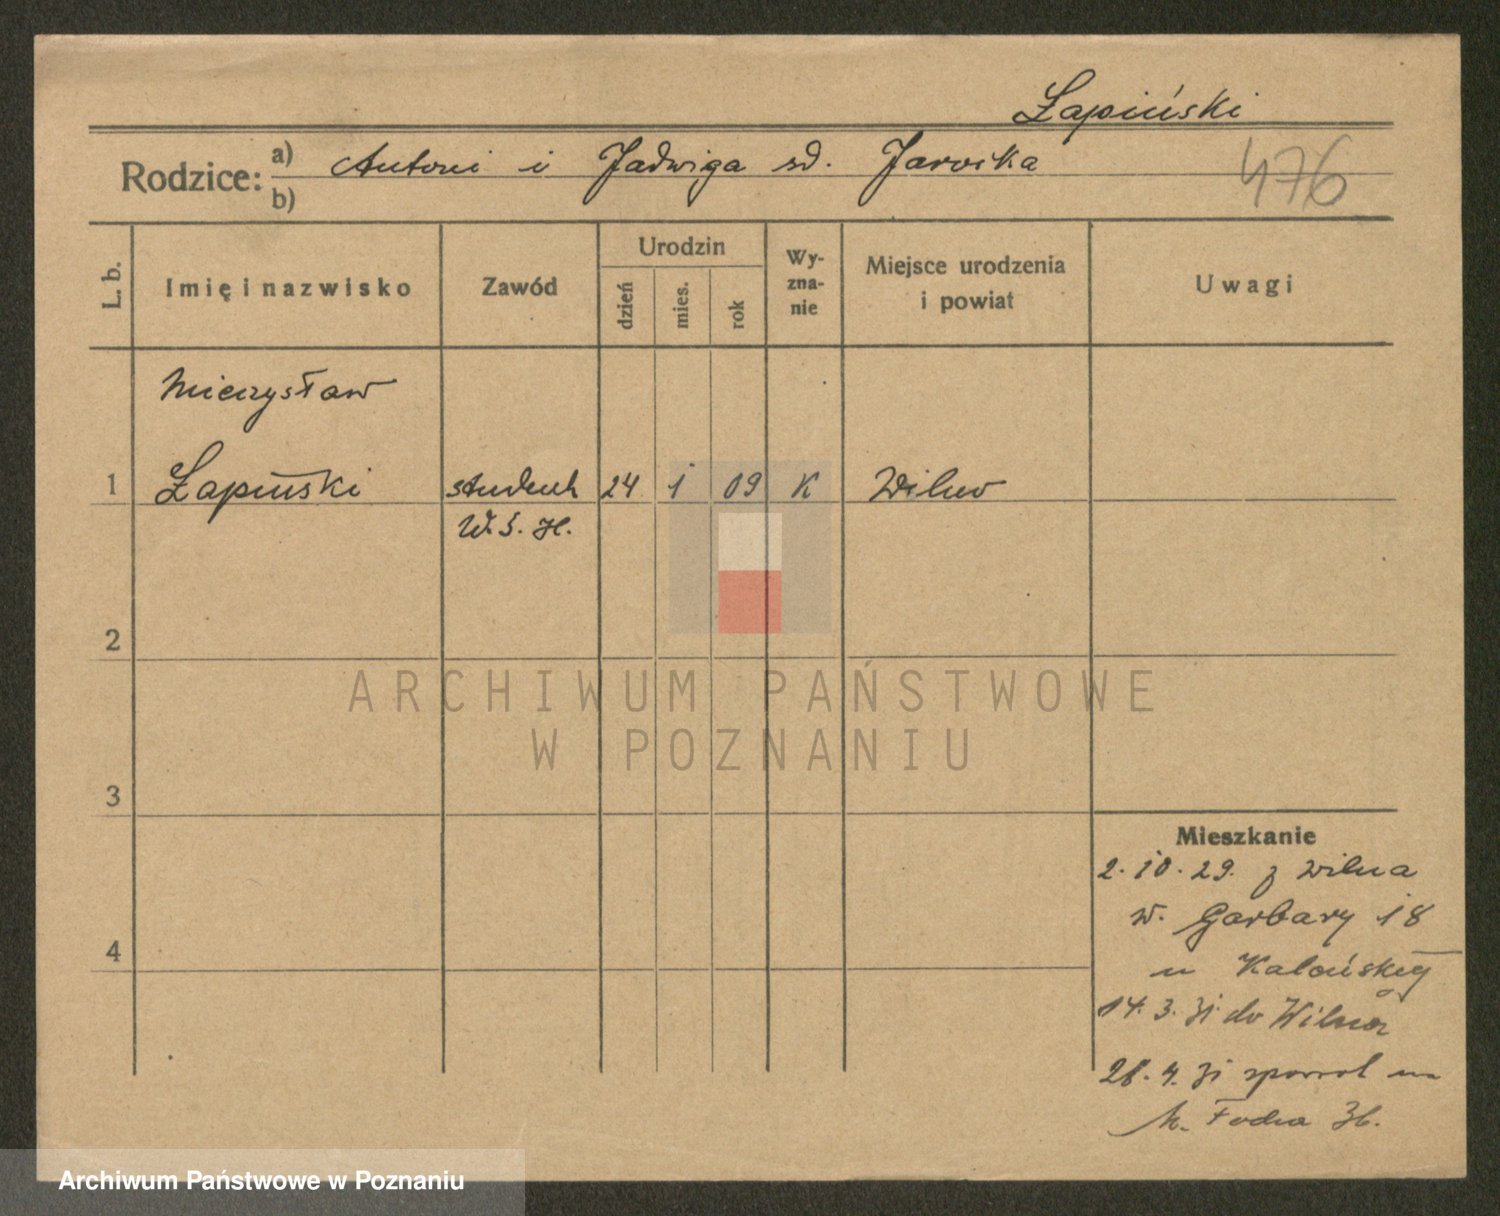 Łapiński
Rodzice: a) Antoni i Jadwiga sd.
b)
476
L. b.
Imię i nazwisko
Zawód
Urodzin
dzień
mies.
rok
Wy-
zna-
nie
Miejsce urodzenia
i powiat
Uwagi
Mieczysław
1 Łapiński student 24 1 09 K Wilno
W. S. H.
2
3
4
Mieszkanie
2. 10. 29. z Wilna
w. Garbary 18
u
14. 3. 31 do Wilna
28. 4. 31 na
M. Focha
ARCHIWUM PAŃSTWOWE
W POZNANIU
Archiwum Państwowe w Poznaniu